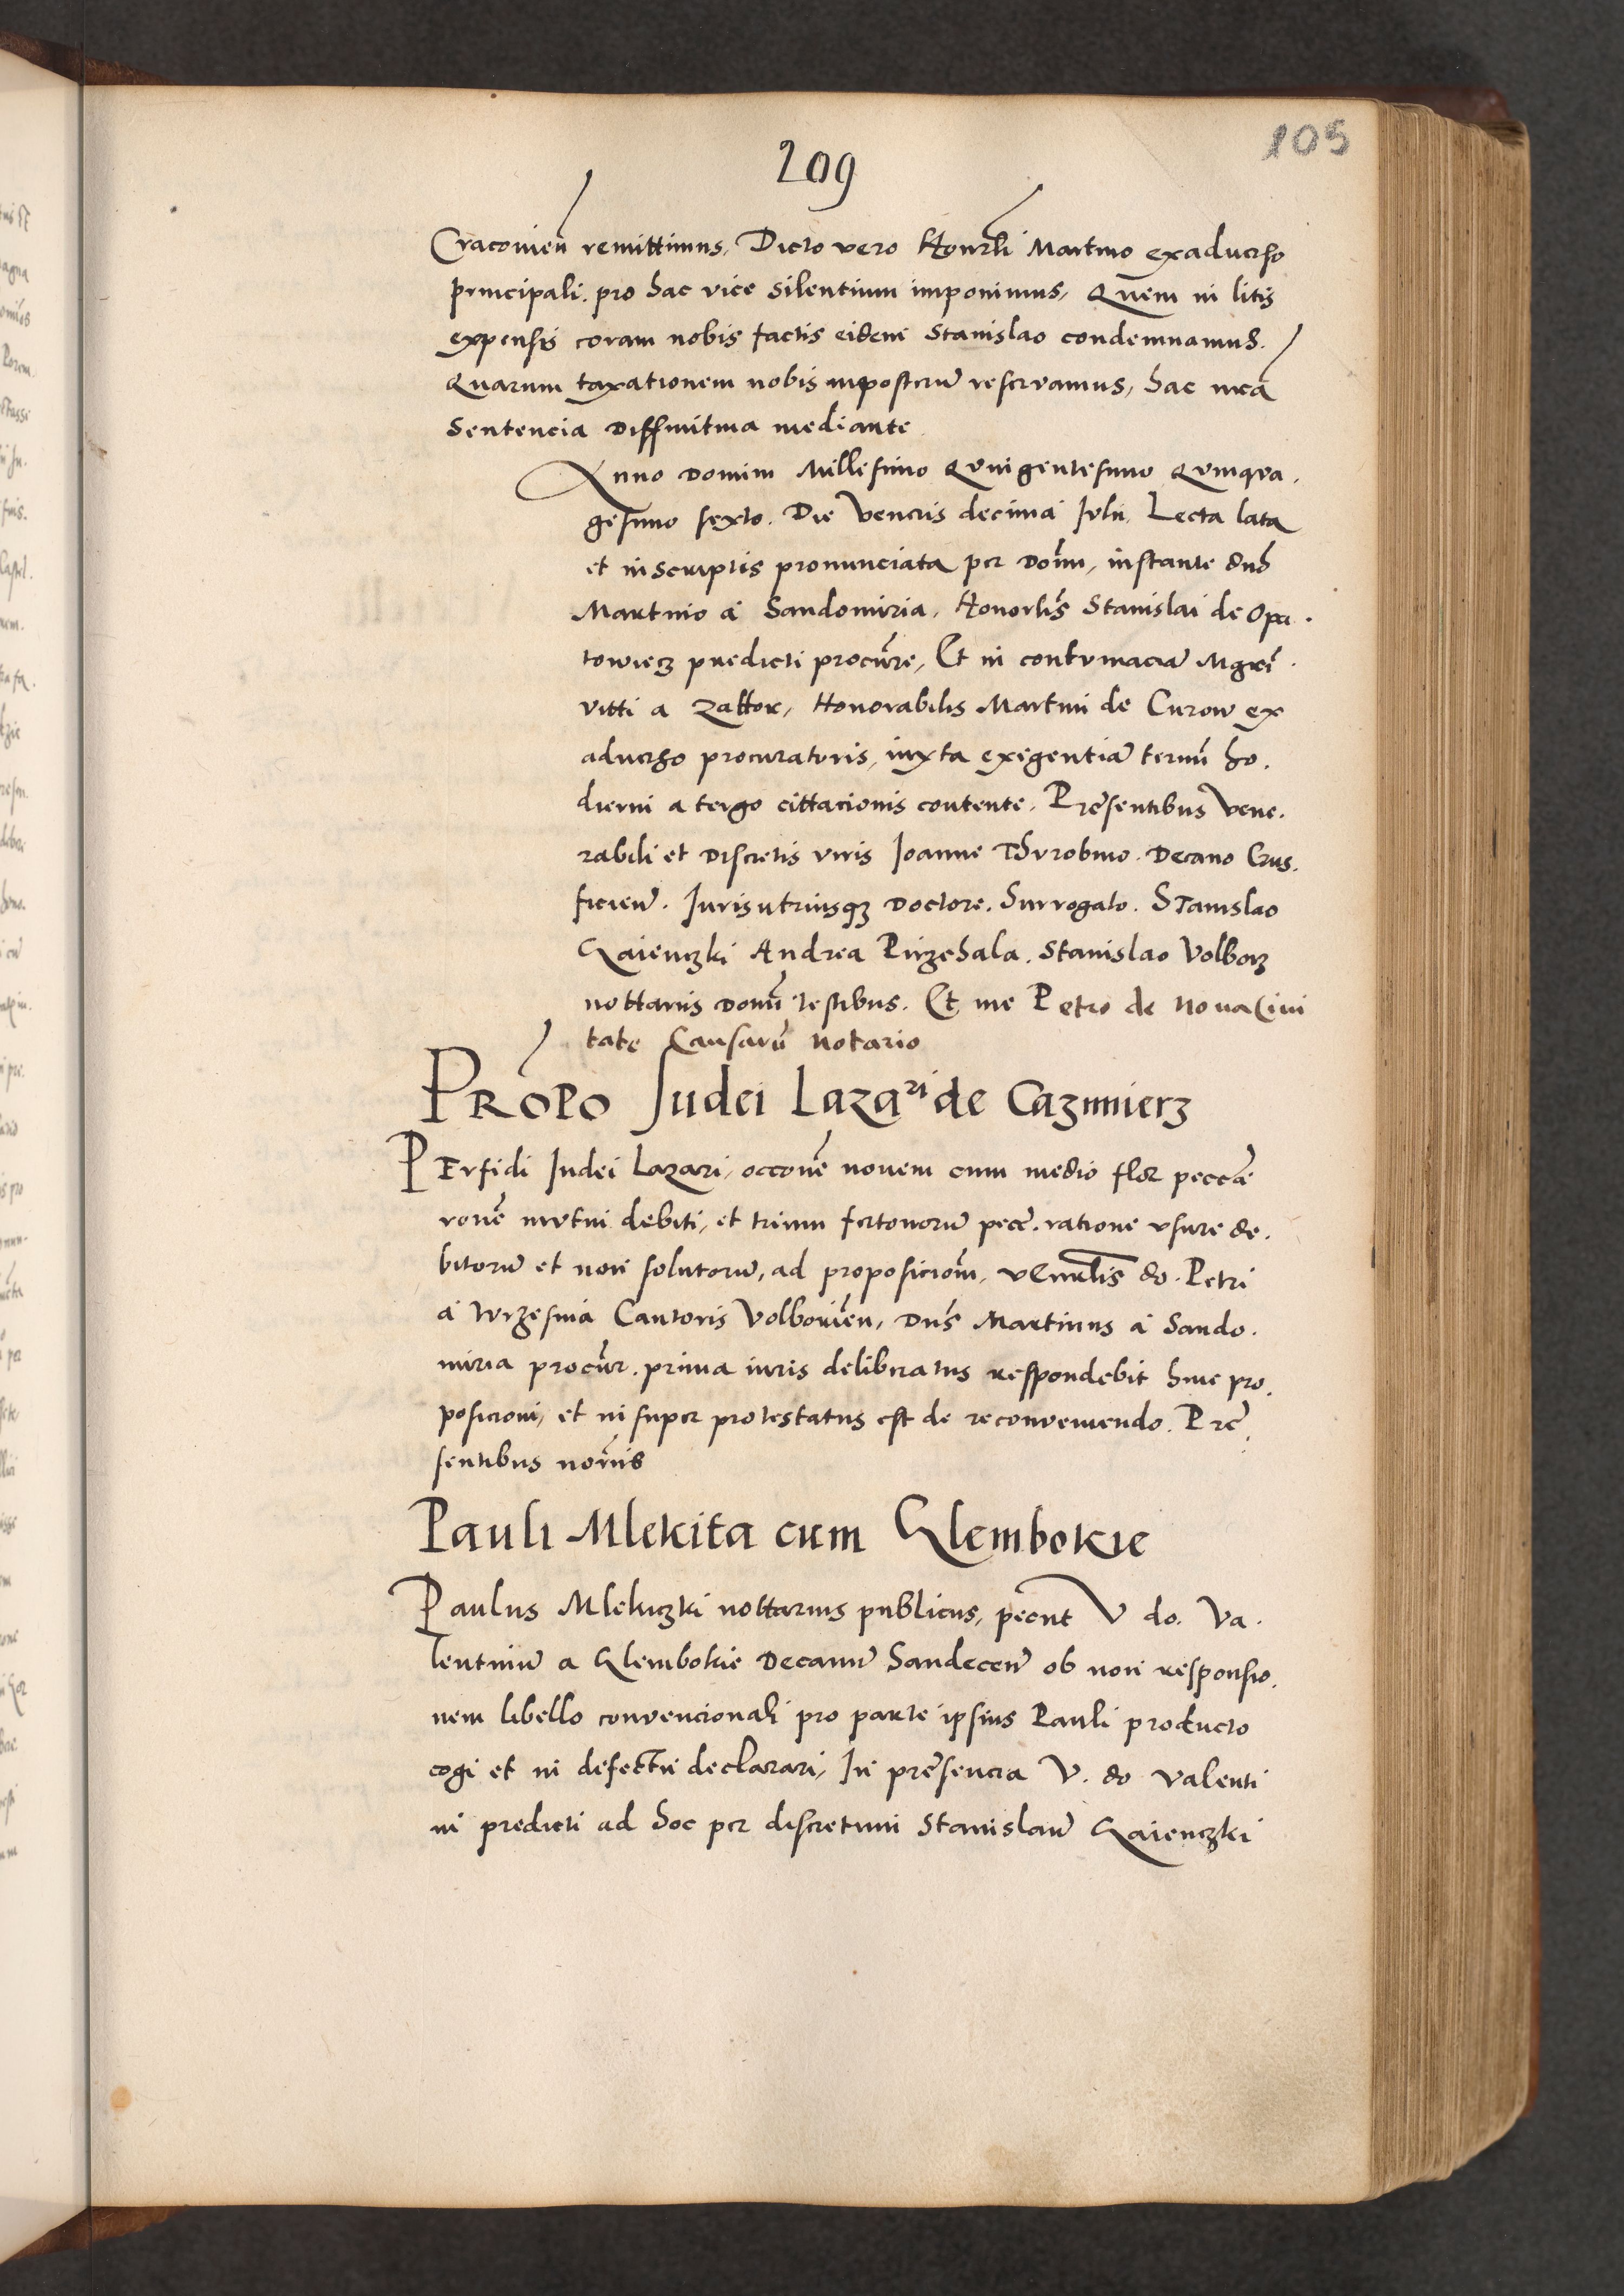 105
209
Cracovien̄ remittimus, Dicto vero Honrli Martino exaduerso
principali. pro hac vice silentium imponimus, Quem in litis
expensis coram nobis factis eidem Stanislao condemnamus.
Quarum taxationem nobis inposterū reservamus, hac nr̄a
Sentencia Diffinitiua mediante
Anno Domini Millesimo Quingentesimo Quinqua.
gesimo sexto. Die Veneris decima Iulii, Lecta lata
et in scriptis pronunciata per Donū, instante dn̄o
Martino á Sandomiria, Honorlis Stanislai de Opa.
towiecz predicti procūre, Et in contumaciā Mgrī.
vitti a Zattor, Honorabilis Martini de Curow ex
aduerso procuratoris, iuxta exigentiā termī ho.
dierni a tergo cittacionis contente, Presentibus Vene.
rabili et Discretis viris Ioanne Thurobino. Decano Crus.
ficien̄. Iuris utriusq3 Doctore. Surrogato. Stanislao
Gaienczki Andrea Pirzchala. Stanislao Volborz
nottariis Donī testibus. Et me Petro de Noua Ciui
tate Causarū Notario
Prōpo Iudei Lazari de Cazimierz
Perfidi Iudei Lazari, occonē nouem cum medio flor peccē
ronē mutui debiti, et trium fertonorū pecc̄. ratione vsure de.
bitorū et non solutorū, ad proposicionē, vEnrlis do. Petri
á Wrzesnia Cantoris Volborien̄, Dn̄s Martinus á Sando.
miria procūr. prima iuris deliberatus respondebit huic pro.
posicioni, et in super protestatus est de reconveniendo. Pre.
sentibus nōriis
Pauli Mlekita cum Glembokie
Paulus Mlekiczki nottarius publicus, pecnt V do. Va.
lentinū a Glembokie Decanū Sandecen̄ ob non responsio.
nem libello convencionali pro parte ipsius Pauli producto
cogi et in defectū declarari, In presencia V. do Valenti
ni predicti ad hoc per discretum Stanislaū Gaienczki